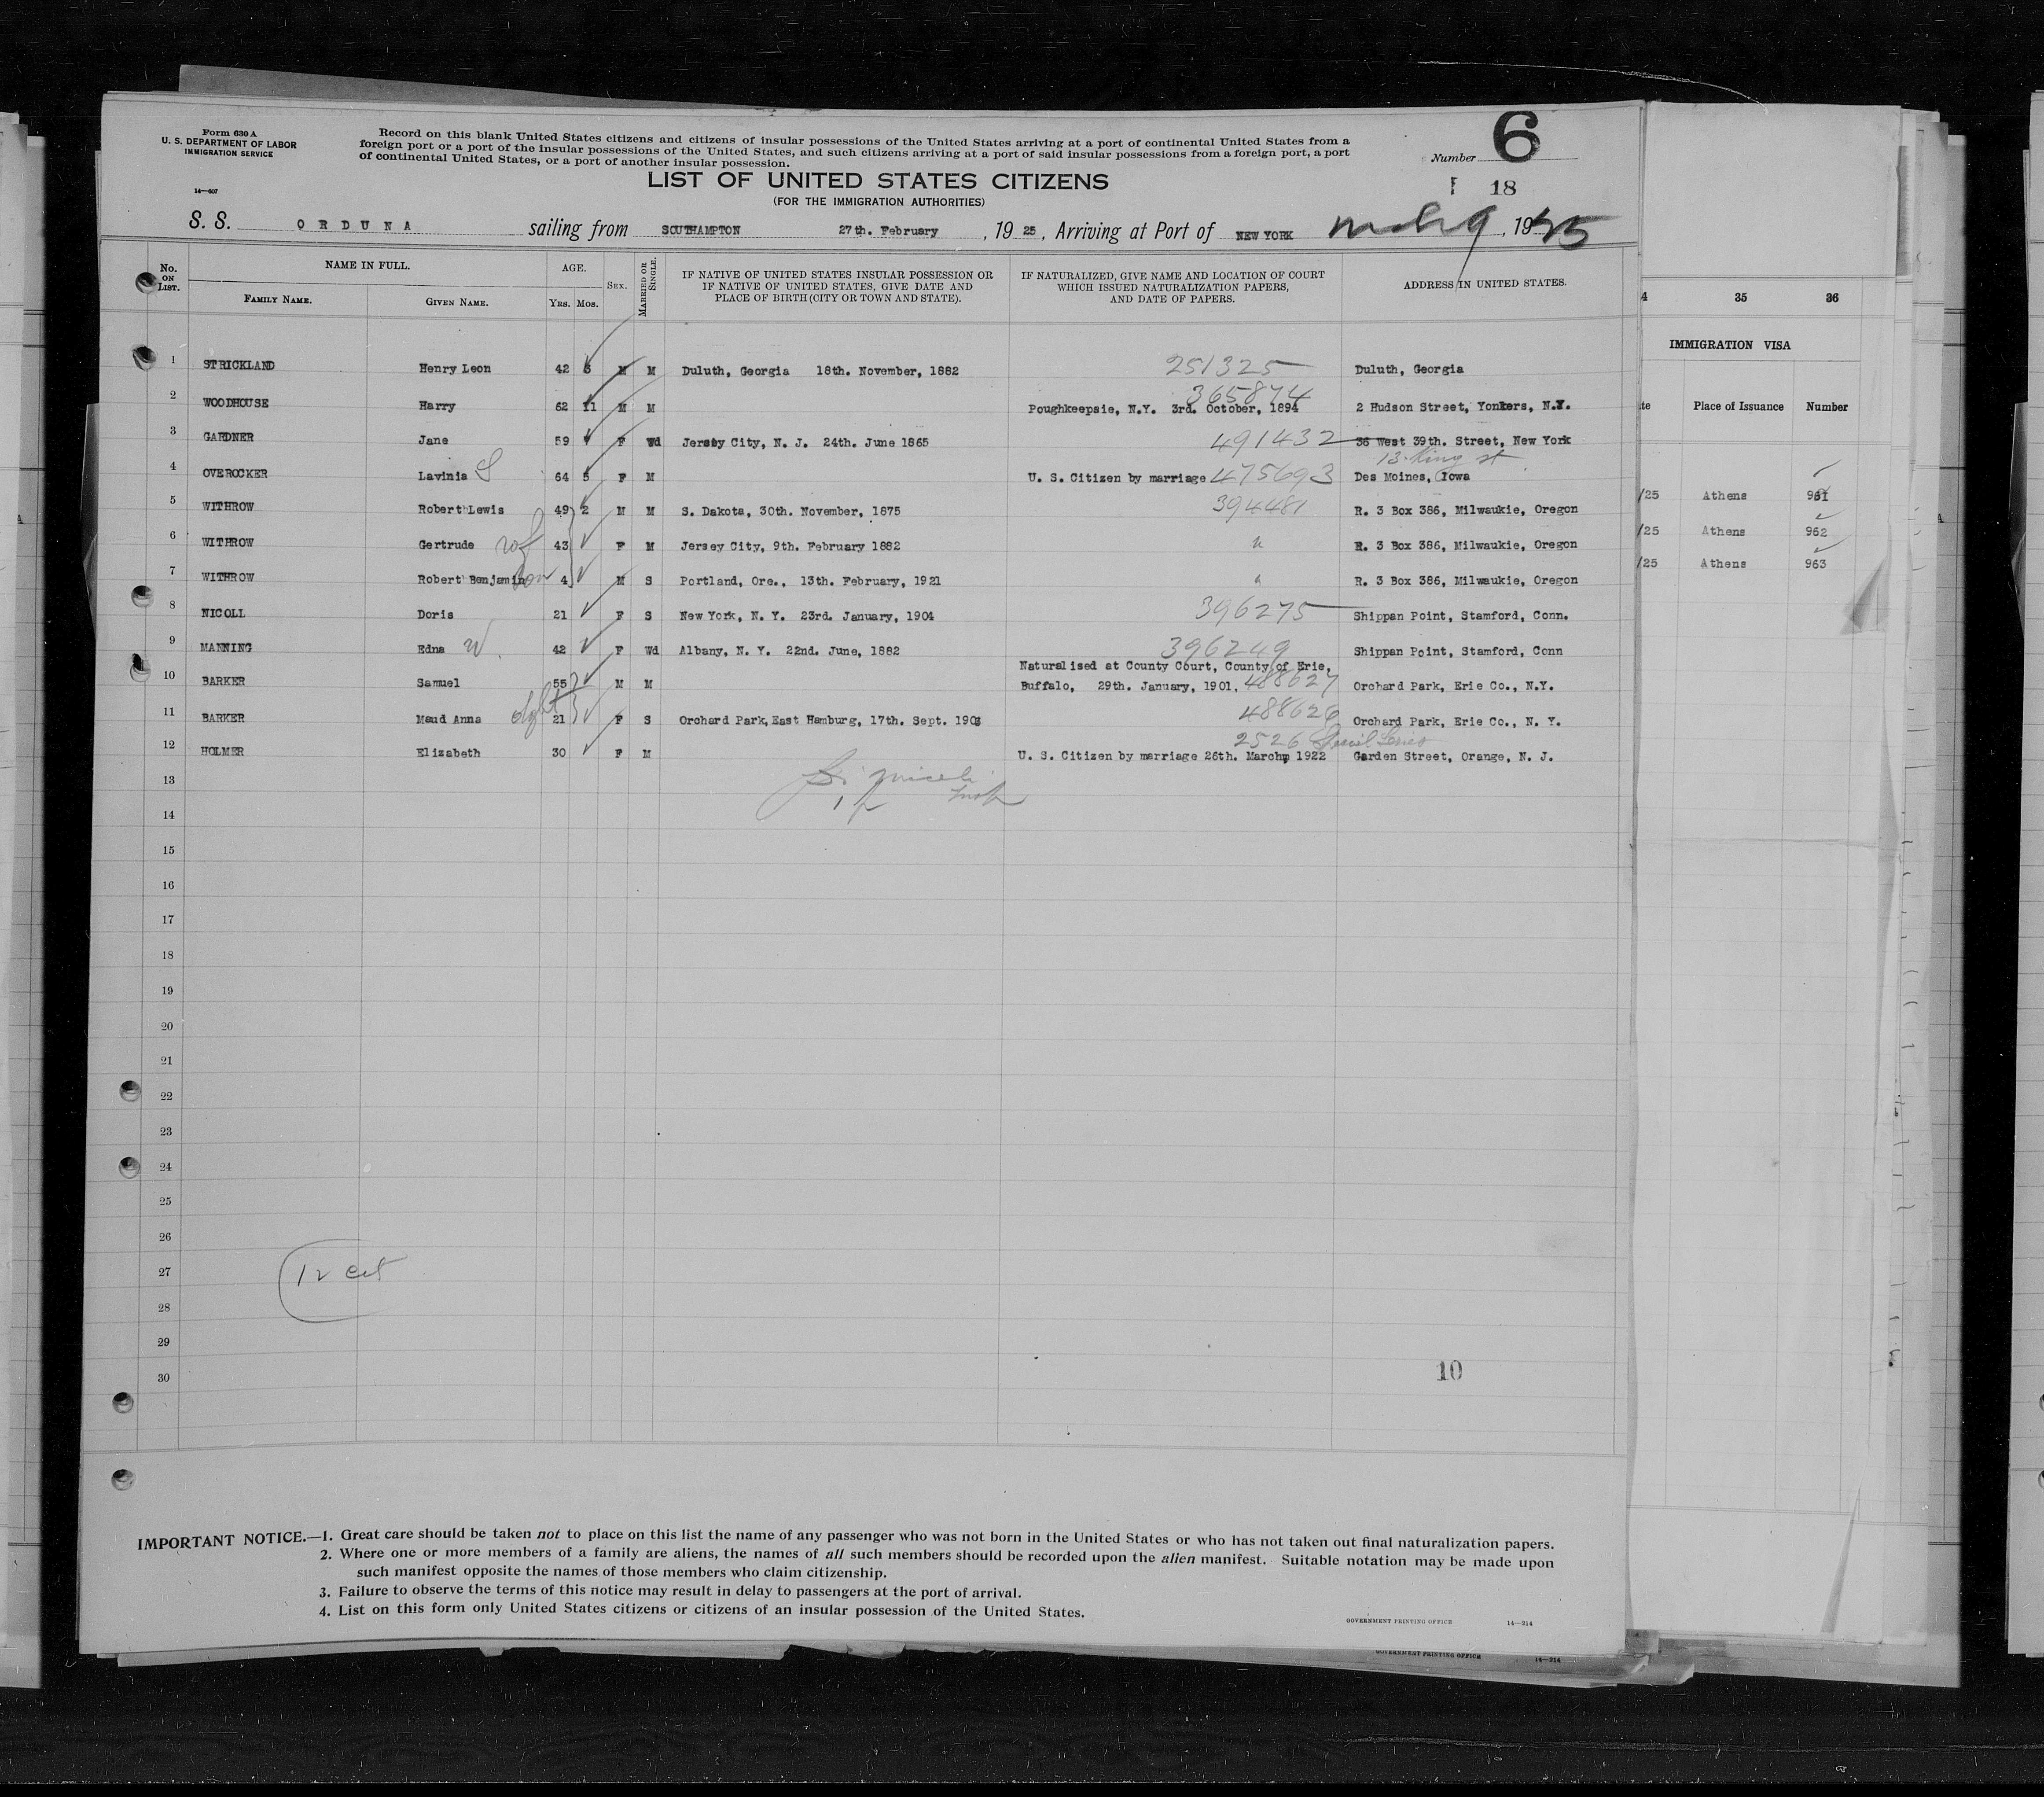 Form 630 A
U. S. DEPARTMENT OF LABOR
IMMIGRATION SERVICE
14—607
Record on this blank United States citizens and citizens of insular possessions of the United States arriving at a port of continental United States from a
foreign port or a port of the insular possessions of the United States, and such citizens arriving at a port of said insular possessions from a foreign port, a port
of continental United States, or a port of another insular possession.
Number 6
18
LIST OF UNITED STATES CITIZENS
(FOR THE IMMIGRATION AUTHORITIES)
S. S. ORDUNA sailing from SOUTHAMPTON 27th. February, 1925, Arriving at Port of NEW YORK Mch 9, 1925
No. ON LIST. NAME IN FULL. AGE. SEX. MARRIED OR SINGLE. IF NATIVE OF UNITED STATES INSULAR POSSESSION OR IF NATIVE OF UNITED STATES, GIVE DATE AND PLACE OF BIRTH (CITY OR TOWN AND STATE). IF NATURALIZED, GIVE NAME AND LOCATION OF COURT WHICH ISSUED NATURALIZATION PAPERS, AND DATE OF PAPERS. ADDRESS IN UNITED STATES.
FAMILY NAME. GIVEN NAME. YRS. MOS.
1 STRICKLAND Henry Leon 42 3 M M Duluth, Georgia 18th. November, 1882 251325 Duluth, Georgia
365874
2 WOODHOUSE Harry 62 11 M M Poughkeepsie, N.Y. 3rd. October, 1894 2 Hudson Street, Yonkers, N.Y.
3 GARDNER Jane 59 F Wd Jersey City, N. J. 24th. June 1865 491432 36 West 39th. Street, New York
13 King st
4 OVEROCKER Lavinia S 64 5 F M U. S. Citizen by marriage 475693 Des Moines, Iowa
5 WITHROW Robert Lewis 49 2 M M S. Dakota, 30th. November, 1875 394481 R. 3 Box 386, Milwaukie, Oregon
6 WITHROW Gertrude wf 43 F M Jersey City, 9th. February 1882 " R. 3 Box 386, Milwaukie, Oregon
7 WITHROW Robert Benjamin son 4 M S Portland, Ore., 13th. February, 1921 " R. 3 Box 386, Milwaukie, Oregon
8 NICOLL Doris 21 F S New York, N. Y. 23rd. January, 1904 396275 Shippan Point, Stamford, Conn.
9 MANNING Edna W. 42 F Wd Albany, N. Y. 22nd. June, 1882 396249 Shippan Point, Stamford, Conn
Naturalised at County Court, County of Erie,
10 BARKER Samuel 55 M M Buffalo, 29th. January, 1901. 488627 Orchard Park, Erie Co., N.Y.
11 BARKER Maud Anna dght 21 F S Orchard Park, East Hamburg, 17th. Sept. 1903 488626 Orchard Park, Erie Co., N. Y.
2526 Special Series
12 HOLMER Elizabeth 30 F M U. S. Citizen by marriage 26th. March, 1922 Garden Street, Orange, N. J.
13
14
15
16
17
18
19
20
21
22
23
24
25
26
27
28
29
30
12 cit
10
35 36
IMMIGRATION VISA
Place of Issuance Number
/25 Athens 961
/25 Athens 962
/25 Athens 963
IMPORTANT NOTICE.—1. Great care should be taken not to place on this list the name of any passenger who was not born in the United States or who has not taken out final naturalization papers.
2. Where one or more members of a family are aliens, the names of all such members should be recorded upon the alien manifest. Suitable notation may be made upon
such manifest opposite the names of those members who claim citizenship.
3. Failure to observe the terms of this notice may result in delay to passengers at the port of arrival.
4. List on this form only United States citizens or citizens of an insular possession of the United States.
GOVERNMENT PRINTING OFFICE 14—214
GOVERNMENT PRINTING OFFICE 14—214